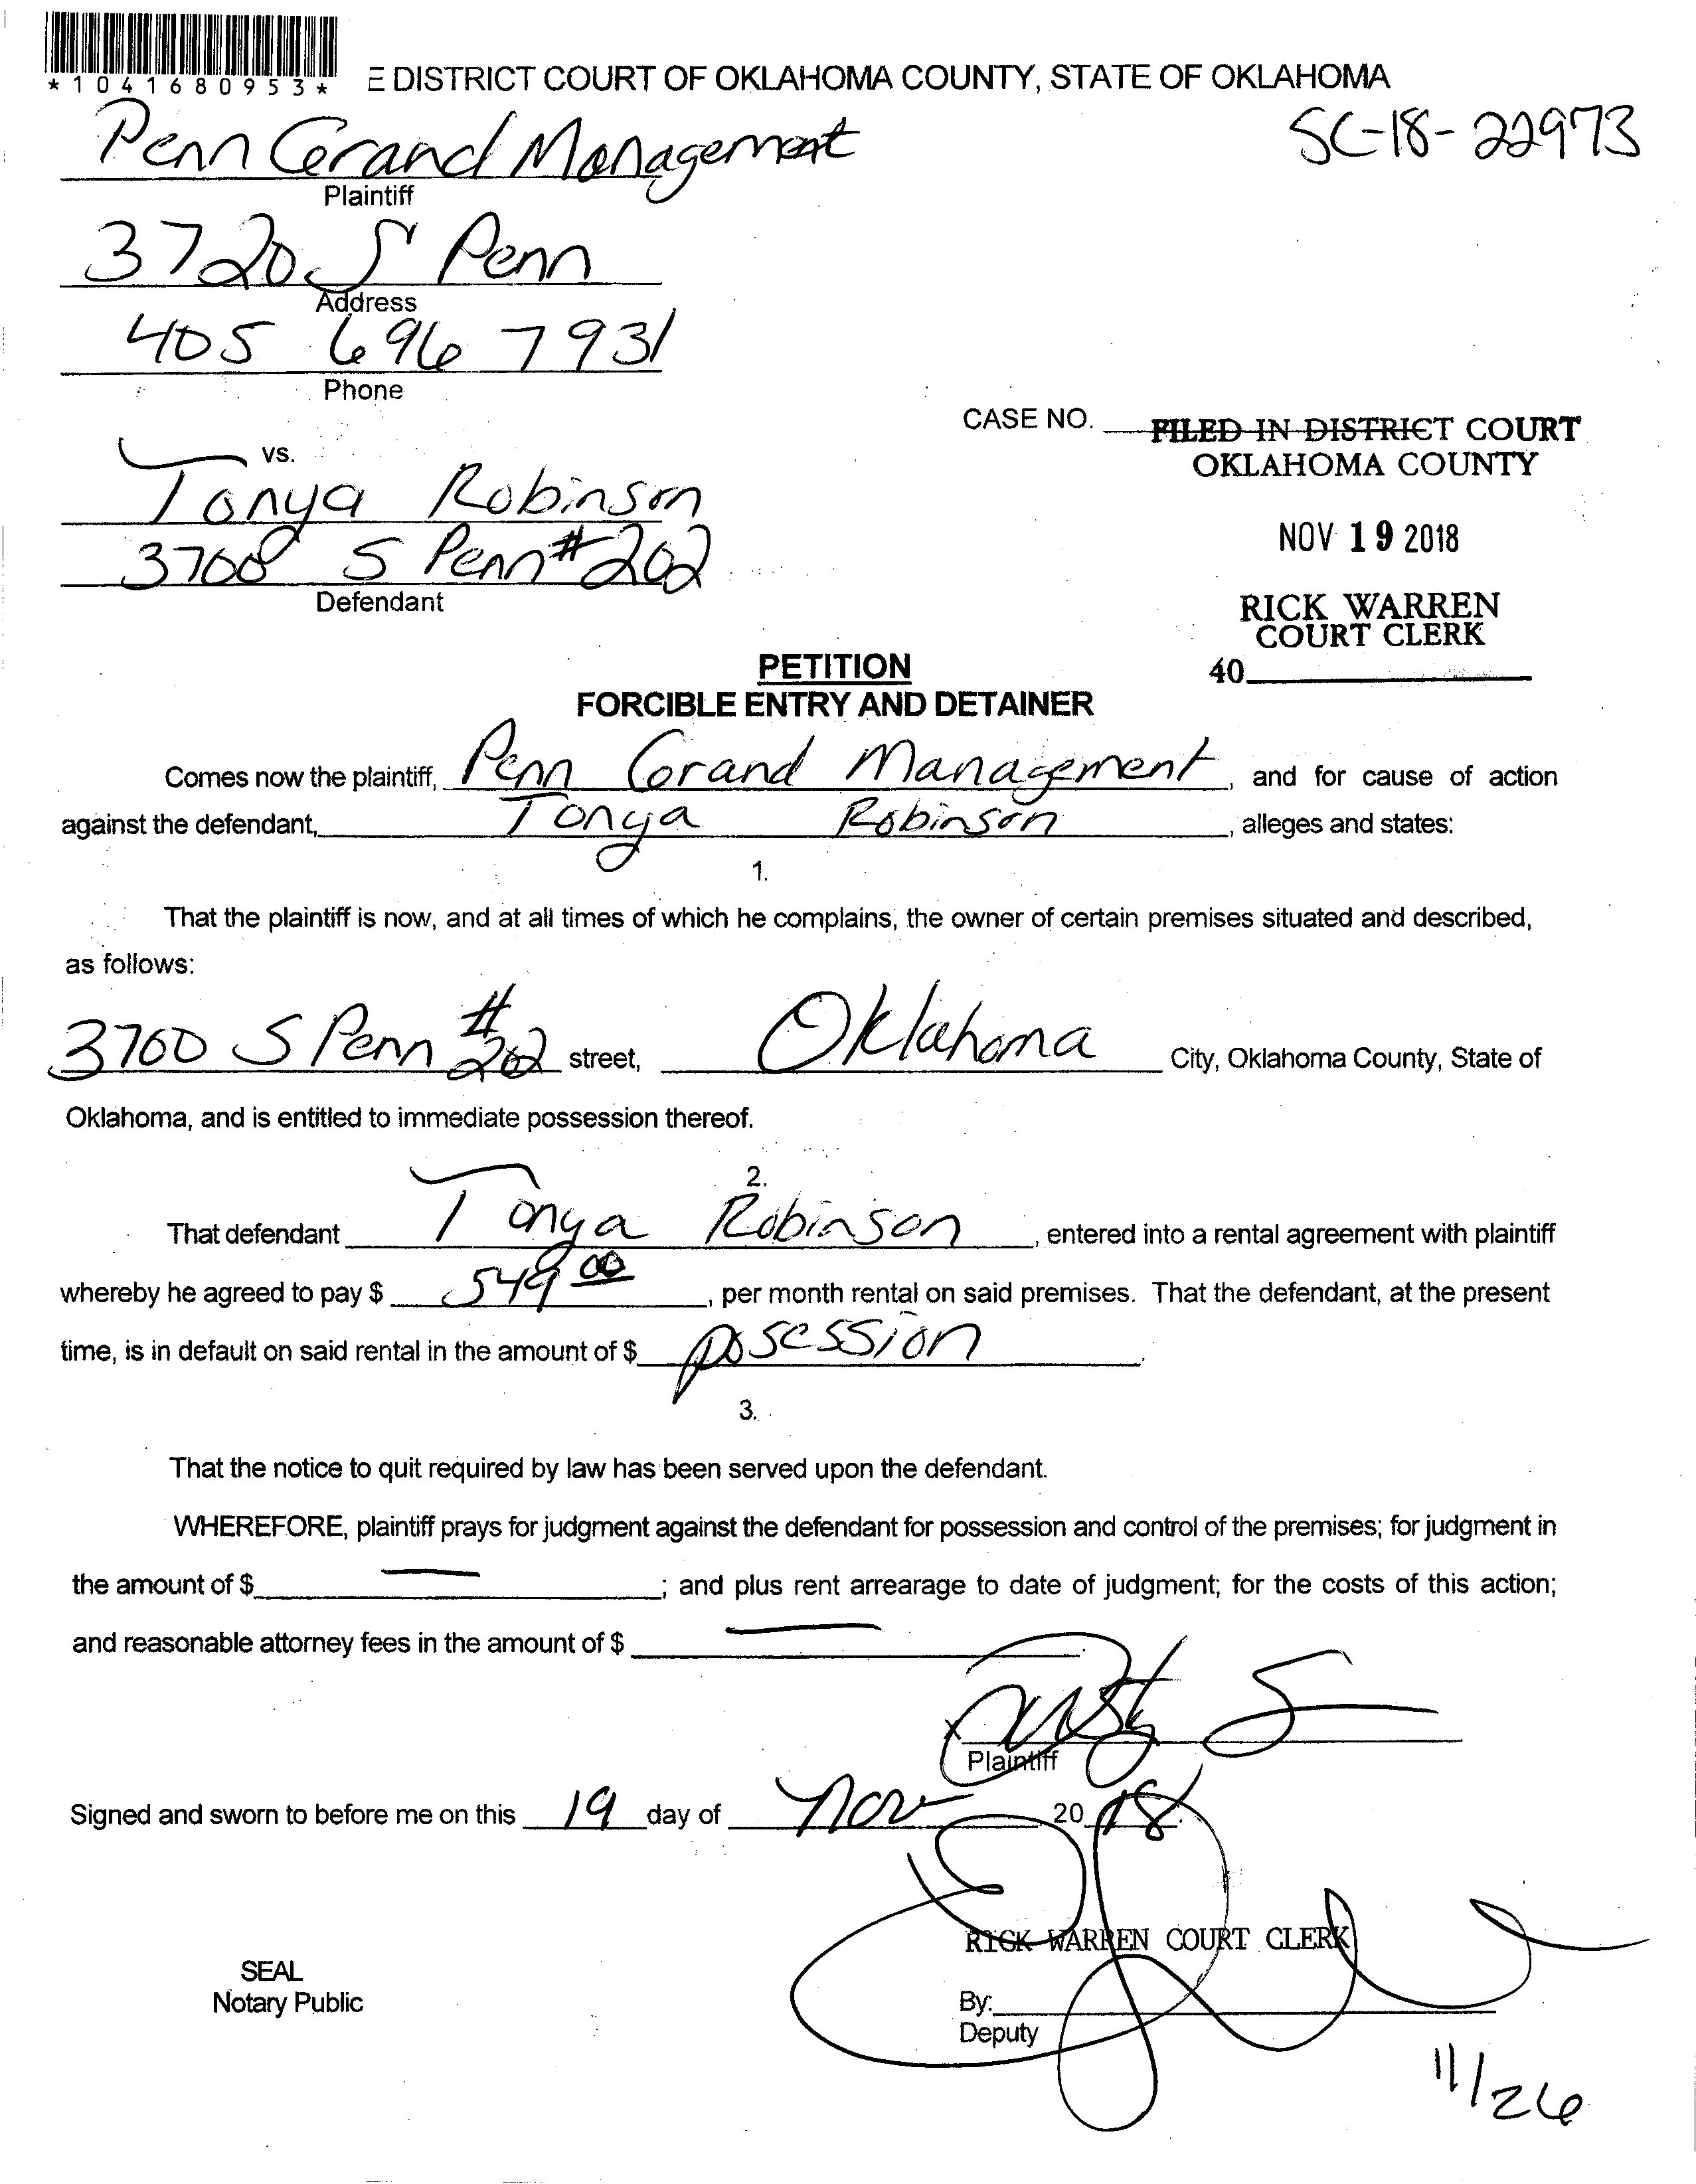 *1041680953*
E DISTRICT COURT OF OKLAHOMA COUNTY, STATE OF OKLAHOMA
Penn Grand Management
SC-18-22973
Plaintiff
3720 S Penn
Address
405 696 7931
Phone
CASE NO.
FILED IN DISTRICT COURT
OKLAHOMA COUNTY
vs.
Tonya Robinson
3700 S Penn #202
Defendant
NOV 19 2018
RICK WARREN
COURT CLERK
40
PETITION
FORCIBLE ENTRY AND DETAINER
Comes now the plaintiff, Penn Grand Management, and for cause of action
against the defendant, Tonya Robinson, alleges and states:
1.
That the plaintiff is now, and at all times of which he complains, the owner of certain premises situated and described,
as follows:
3700 S Penn #202 street, Oklahoma City, Oklahoma County, State of
Oklahoma, and is entitled to immediate possession thereof.
2.
That defendant Tonya Robinson, entered into a rental agreement with plaintiff
whereby he agreed to pay $ 549 00, per month rental on said premises. That the defendant, at the present
time, is in default on said rental in the amount of $ posession.
3.
That the notice to quit required by law has been served upon the defendant.
WHEREFORE, plaintiff prays for judgment against the defendant for possession and control of the premises; for judgment in
the amount of $ —; and plus rent arrearage to date of judgment; for the costs of this action;
and reasonable attorney fees in the amount of $ —.
x
Plaintiff
Signed and sworn to before me on this 19 day of Nov 20 18.
RICK WARREN COURT CLERK
SEAL
Notary Public
By:
Deputy
11/26